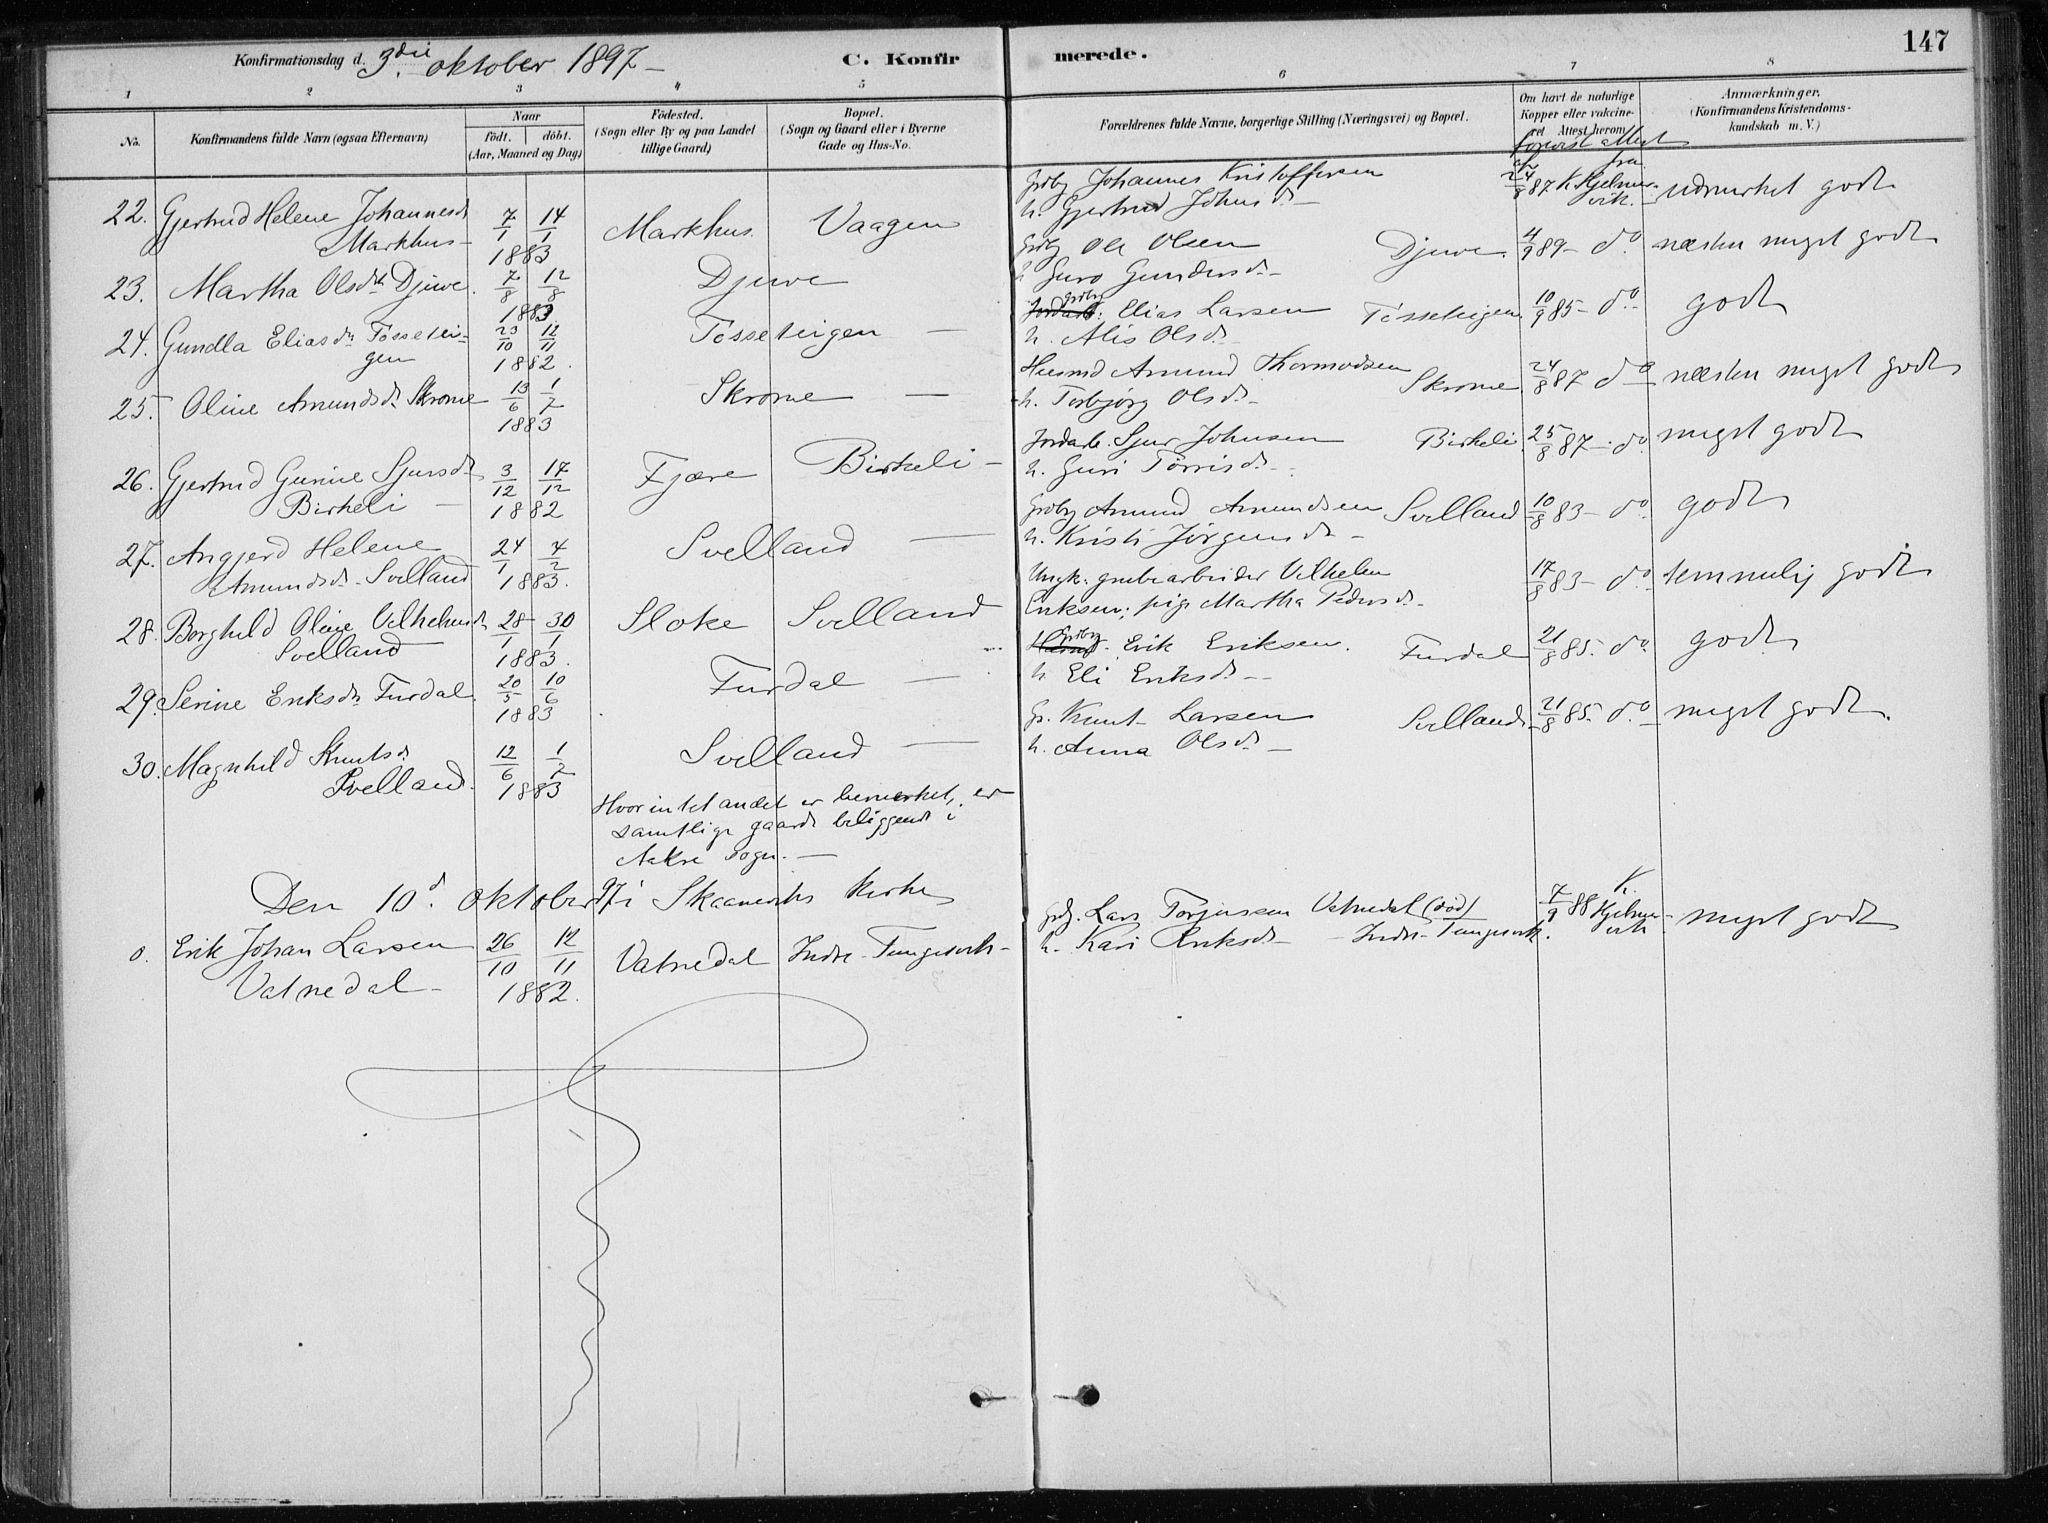 147
Konfirmationsdag d. 3die oktober 1897 – C. Konfirmerede.
1 2 3 4 5 6 7 8
No. Konfirmandens fulde Navn (ogsaa Efternavn) Naar født. døbt. (Aar, Maaned og Dag) Fødested. (Sogn eller By og paa Landet tillige Gaard) Bopæl. (Sogn og Gaard eller i Byerne Gade og Hus-No. Forældrenes fulde Navne, borgerlige Stilling (Næringsvei) og Bopæl. Om havt de naturlige Kopper eller vakcineret Attest herom. Anmærkninger. (Konfirmandens Kristendomskundskab m. V.)
forevist attest
af fra
22. Gjertrud Helene Johannesdt 7/1 14/1 Markhus Vaagen Grdbr Johannes Kristoffersen 24/8 87 K. Hjelmervik. udmerket godt
Markhus – 1883 h. Gjertrud Johnsdt. –
23. Martha Olsdtr Djuve. 7/8 12/8 Djuve Grdbr Ole Olsen Djuve. 4/9 89 – do næsten meget godt
1883 h Guro Gundersdt –
24. Gundla Eliasdtr Tøssetei- 23/10 12/11 Tøsseteigen – Jordarb. grdbr Elias Larsen Tøsseteigen 10/9 85 – do – godt
gen 1882. h. Alis Olsdt. –
25. Oline Amundsdt. Skrome 13/6 1/7 Skrome – Husmd Amund Thormodsen Skrome 24/8 87 do – næsten meget godt
1883 h. Torbjørg Olsdt. –
26. Gjertrud Gurine Sjursdt 3/12 17/12 Fjære Birkeli – Jordarb. Sjur Johnsen Birkeli. 25/8 87 – do. meget godt
Birkeli – 1882 h. Guri Tørrisdt. –
27. Angjerd Helene 24/1 4/2 Svelland – Grdbr Amund Amundsen Svelland 10/8 83 – do godt
Amundsdt. Svelland 1883. h. Kristi Jørgensdt –
28. Borghild Oline Vilhelmsdt 28/1 30/1 Sloke Svelland Ungk. grubearbeider Vilhelm 17/8 83 – do. temmelig godt
Svelland 1883. Eriksen; pige Martha Pedersdt. –
29. Serine Eriksdtr Furdal. 20/5 10/6 Furdal – Grdbr Erik Eriksen. Furdal 21/8 85. do. godt
1883 h Eli Eriksdt –
30. Magnhild Knutsdt 12/6 1/7 Svelland – Gr. Knut Larsen Svelland. 21/8 85. do. – meget godt.
Svelland. 1883 h. Anna Olsdt –
Hvor intet andet er bemerket, er
samtlige gaarde beliggende i
Aakre sogn. –
Den 10d. oktober 97 i Skaanevik kirke
0. Erik Johan Larsen 26/10 12/11 Vatnedal Indre Tungesvik – Grdbr. Lars Torjussen Vatnedal (død) 7/9 88 K. Hjelmervik meget godt
Vatnedal – 1882. h. Kari Eriksdt – Indre Tungesvik.